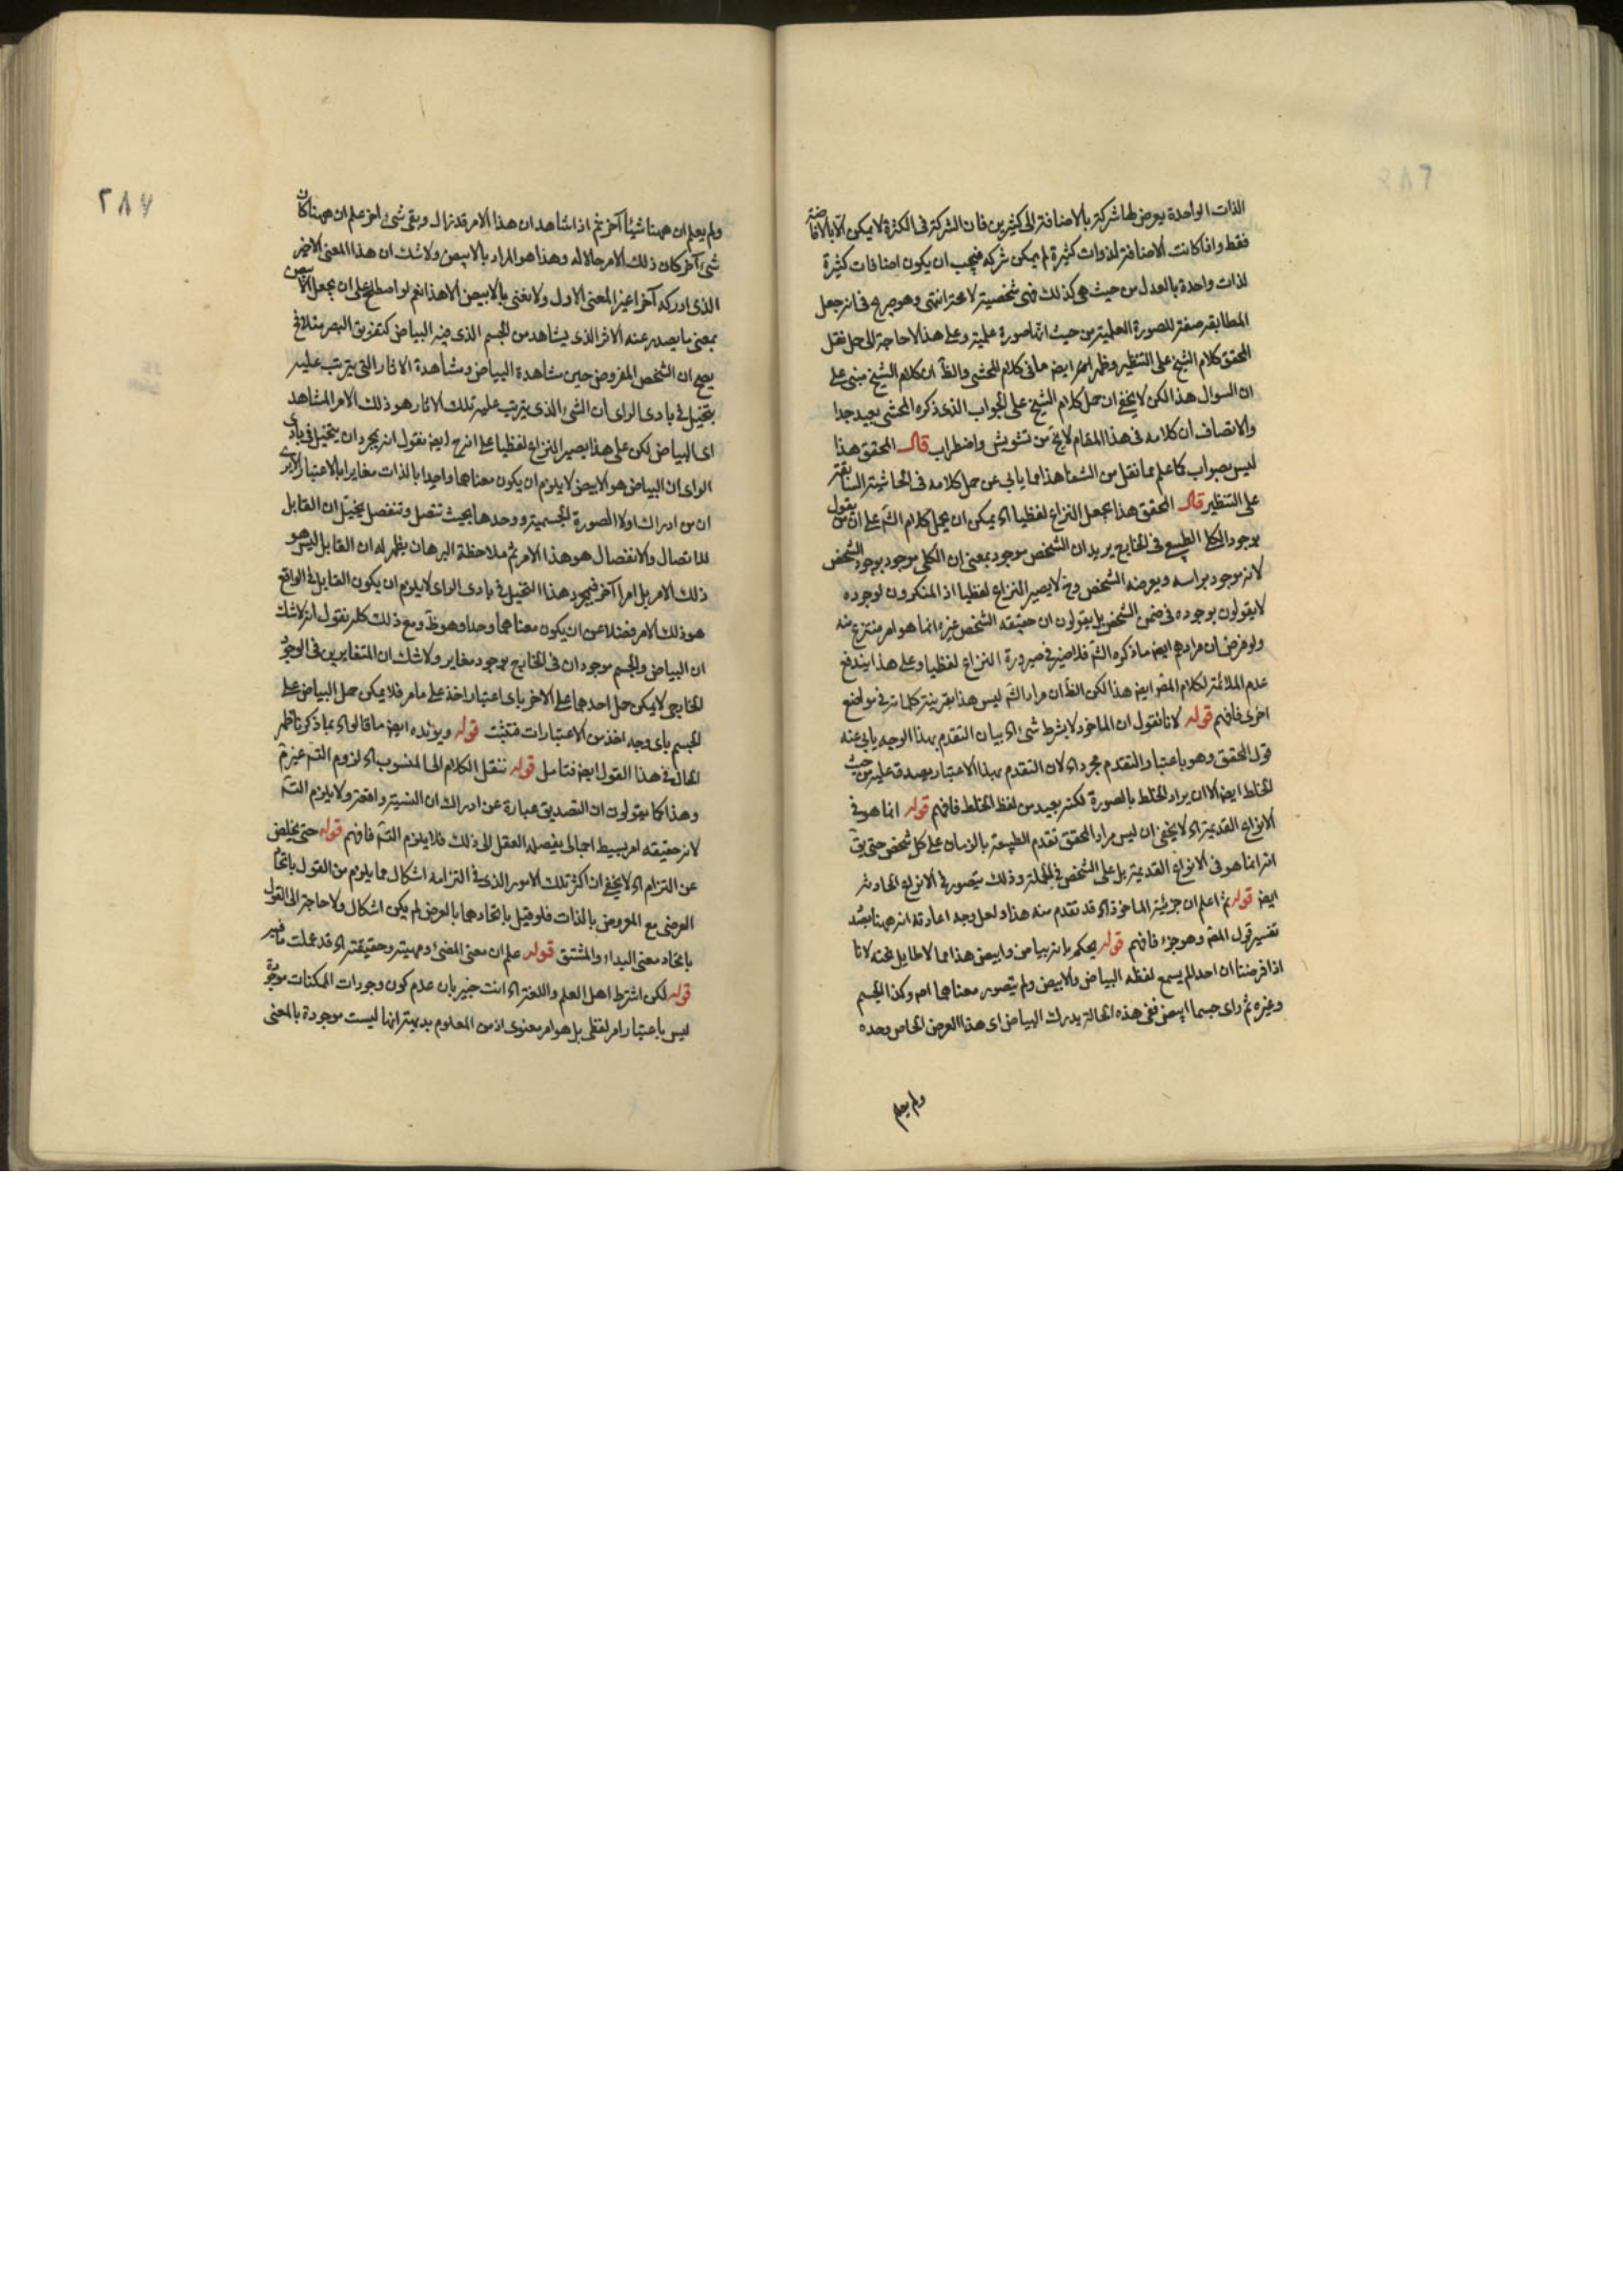 الذات الواحدة يعرض لها شركة بالاضافة الى كثيرين فان الشركة فى الكثرة لا يمكن الا بالاضافة
فقط واذا كانت الاضافة لذوات كثيرة لم يمكن شركة فيجب ان يكون اضافات كثيرة
لذات واحدة بالعدد من حيث هى كذلك فهى شخصية لا محة انتهى وهو صريح فى انه جعل
المطابقة صفة للصورة العلمية من حيث انها صورة علمية وعلى هذا لا حاجة الى حمل نقل
المحقق كلام الشيخ على التنظير وظهر امر ايض ما فى كلام المحشى والظ ان كلام الشيخ مبنى على
ان السوال هذا لكن لا يخفى ان حمل كلام الشيخ على الجواب الذى ذكره المحشى بعيد جدا
والانصاف ان كلامه فى هذا المقام لا يخ من تشويش واضطراب قال المحقق هذا
ليس بصواب كما علم مما نقل من الشفا هذا مما يابى عن حمل كلامه فى الحاشية السابقة
على التنظير قال المحقق هذا يجعل النزاع لفظيا اه يمكن ان يحمل كلام الش على ان من يقول
بوجود الكلى الطبيعى فى الخارج يريد ان الشخص موجود بمعنى ان الكلى موجود بوجود الشخص
لا انه موجود براسه ويعرضه الشخص وح لا يصير النزاع لفظيا اذ المنكرون لوجوده
لا يقولون بوجوده فى ضمن الشخص بل يقولون ان حقيقة الشخص غيره انما هو امر منتزع منه
ولو فرض ان مرادهم ايض ما ذكره الش فلا ضير فى صيرورة النزاع لفظيا وعلى هذا يندفع
عدم الملائمة لكلام المص ايض هذا لكن الظ ان مراد الش ليس هذا بقرينة كلماته فى مواضع
اخرى فافهم قوله لانا نقول ان الماخوذ لا بشرط شى اه بيان التقدم بهذا الوجه يابى عنه
قول المحقق وهو باعتبار التقدم مجرد اه لان التقدم بهذا الاعتبار يصدق عليه من حيث
الخلط ايض الا ان يراد الخلط بالصورة لكنه بعيد من لفظ الخلط فافهم قوله انما هو فى
الانواع القديمة اه لا يخفى ان ليس مراد المحقق تقدم الطبيعة بالزمان على كل شخص حتى يق
انه انما هو فى الانواع القديمة بل على الشخص فى الجملة وذلك يتصور فى الانواع الحادثة
ايض قوله ثم اعلم ان جزئية الماخوذ اه قد تقدم منه هذا ولعل وجه اعادته انه ههنا بصدد
تفسير قول المص وهو جزء فافهم قوله يحكم بانه بياض وابيض هذا مما لا طايل تحته لانا
اذا فرضنا ان احدا لم يسمع لفظ البياض والابيض ولم يتصور معناهما اصلا وكذا الجسم
وغيره ثم راى جسما ابيض ففى هذه الحالة يدرك البياض اى هذا العرض الخاص وحده
ولم يعلم
٢٨٧
ولم يعلم ان ههنا شيئا آخر ثم اذا شاهد ان هذا الامر قد زال وبقى شى اخر علم ان ههنا كان
شى آخر كان ذلك الامر حالا له وهذا هو المراد بالابيض ولا شك ان هذا المعنى الاخير
الذى ادركه آخرا غير المعنى الاول ولا نعنى بالابيض الا هذا نعم لو اصطلح على ان يجعل الابيض
بمعنى ما يصدر عنه الاثر الذى يشاهد من الجسم الذى فيه البياض كتفريق البصر مثلا فح
يصح ان الشخص المفروض حين مشاهدة البياض ومشاهدة الاثار التى يترتب عليه
يتخيل فى بادى الراى ان الشى الذى يترتب عليه تلك الاثار هو ذلك الامر المشاهد
اى البياض لكن على هذا يصير النزاع لفظيا على انه ح ايض نقول انه بمجرد ان يتخيل فى بادى
الراى ان البياض هو الابيض لا يلزم ان يكون معناهما واحدا بالذات مغايرا بالاعتبار الا يرى
ان من ادراك اولا الصورة الجسمية ووحدها بحيث تتصل وتنفصل يتخيل ان القابل
للاتصال والانفصال هو هذا الامر ثم ملاحظة البرهان يظهر له ان القابل ليس هو
ذلك الامر بل امرا آخر فبمجرد هذا التخيل فى بادى الراى لا يلزم ان يكون القابل فى الواقع
هو ذلك الامر فضلا عن ان يكون معناهما واحدا وهو ظ ومع ذلك كله نقول انه لا شك
ان البياض والجسم موجودان فى الخارج بوجود مغاير ولا شك ان المتغايرين فى الوجود
الخارجى لا يمكن حمل احدهما على الاخر باى اعتبار اخذ على ما مر فلا يمكن حمل البياض على
الجسم باى وجه اخذ من الاعتبارات فتثبت قوله ويؤيده ايض ما قالواه بما ذكرنا ظهر
الحال فى هذا القول ايض فتامل قوله ننقل الكلام الى المنسوب اه لزوم التس غيرم
وهذا كما يقولون ان التصديق عبارة عن ادراك ان النسبة واقعة ولا يلزم التس
لانه حقيقة امر بسيط اجمالى يفصله العقل الى ذلك فلا يلزم التس فافهم قوله حتى يخلص
عن التزام اه لا يخفى ان اكثر تلك الامور الذى فى التزامه اشكال مما يلزم من القول باتحاد
العرضى مع المعروض بالذات فلو قيل باتحادهما بالعرض لم يكن اشكال ولا حاجة الى القول
باتحاد معنى المبداء والمشتق قوله علم ان معنى المضىء ومهيته وحقيقته اه قد عملت ما فيه
قوله لكن اشترط اهل العلم واللغة اه انت خبير بان عدم كون وجودات الممكنات موجودة
ليس باعتبار امر لفظى بل هو امر معنوى اذ من المعلوم بديهة انها ليست موجودة بالمعنى